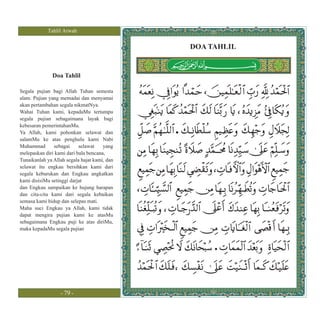 Tahlil Arwah
DOA TAHLIL
Doa Tahlil
Segala pujian bagi Allah Tuhan semesta
alam. Pujian yang memadai dan menyamai
akan pertambahan segala nikmatNya.
Wahai Tuhan kami, kepadaMu tertampu
segala pujian sebagaimana layak bagi
kebesaran pemerintahanMu.
Ya Allah, kami pohonkan selawat dan
salamMu ke atas penghulu kami Nabi
Muhammad sebagai selawat yang
melepaskan diri kami dari bala bencana,
Tunaikanlah ya Allah segala hajat kami, dan
selawat itu engkau bersihkan kami dari
segala keburukan dan Engkau angkatkan
kami disisiMu setinggi darjat
dan Engkau sampaikan ke hujung harapan
dan cita-cita kami dari segala kebaikan
semasa kami hidup dan selepas mati.
Maha suci Engkau ya Allah, kami tidak
dapat mengira pujian kami ke atasMu
sebagaimana Engkau puji ke atas diriMu,
maka kepadaMu segala pujian
- 79 -
بِسْمِ اللَّهِ الرَّحْمَنِ الرَّحِيمِ
اَلْحَمْدُ لِلَّهِ رَبِّ الْعَالَمِيْنَ، حَمْدًا يُوَافِي نِعَمَهُ
وَيُكَافِئُ مَزِيْدَهُ، يَا رَبَّنَا لَكَ الْحَمْدُ كَمَا يَنْبَغِي
لِجَلَالِ وَجْهِكَ وَعَظِيْمِ سُلْطَانِكَ. اَللَّهُمَّ صَلِّ
وَسَلِّمْ عَلَى سَيِّدِنَا مُحَمَّدٍ صَلَاةً تُنْجِيْنَا بِهَا مِنْ
جَمِيْعِ الْأَهْوَالِ وَالْآفَاتِ، وَتَقْضِي لَنَا بِهَا مِنْ جَمِيْعِ
الْحَاجَاتِ وَتُطَهِّرُنَا بِهَا مِنْ جَمِيْعِ السَّيِّئَاتِ،
وَتَرْفَعُنَا بِهَا عِنْدَكَ أَعْلَى الدَّرَجَاتِ، وَتُبَلِّغُنَا
بِهَا أَقْصَى الْغَايَاتِ مِنْ جَمِيْعِ الْخَيْرَاتِ فِي
الْحَيَاةِ وَبَعْدَ الْمَمَاتِ. سُبْحَانَكَ لَا نُحْصِي ثَنَاءً
عَلَيْكَ كَمَا أَثْنَيْتَ عَلَى نَفْسِكَ، فَلَكَ الْحَمْدُ